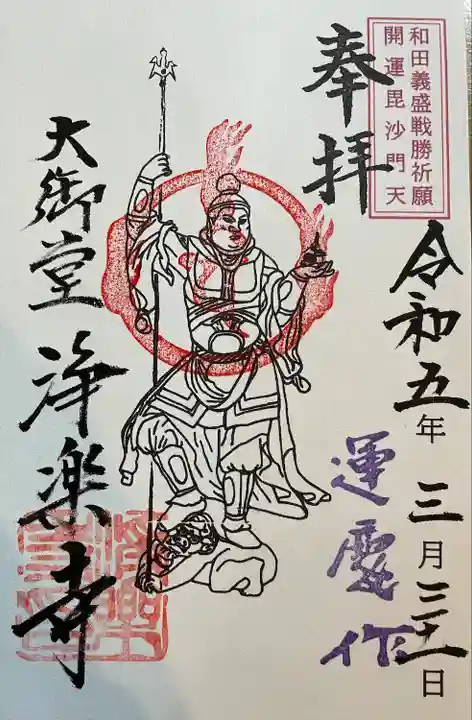 和田義盛戦勝祈願
開運毘沙門天
奉拝
令和五年三月三十一日
運慶作
大御堂 浄楽寺